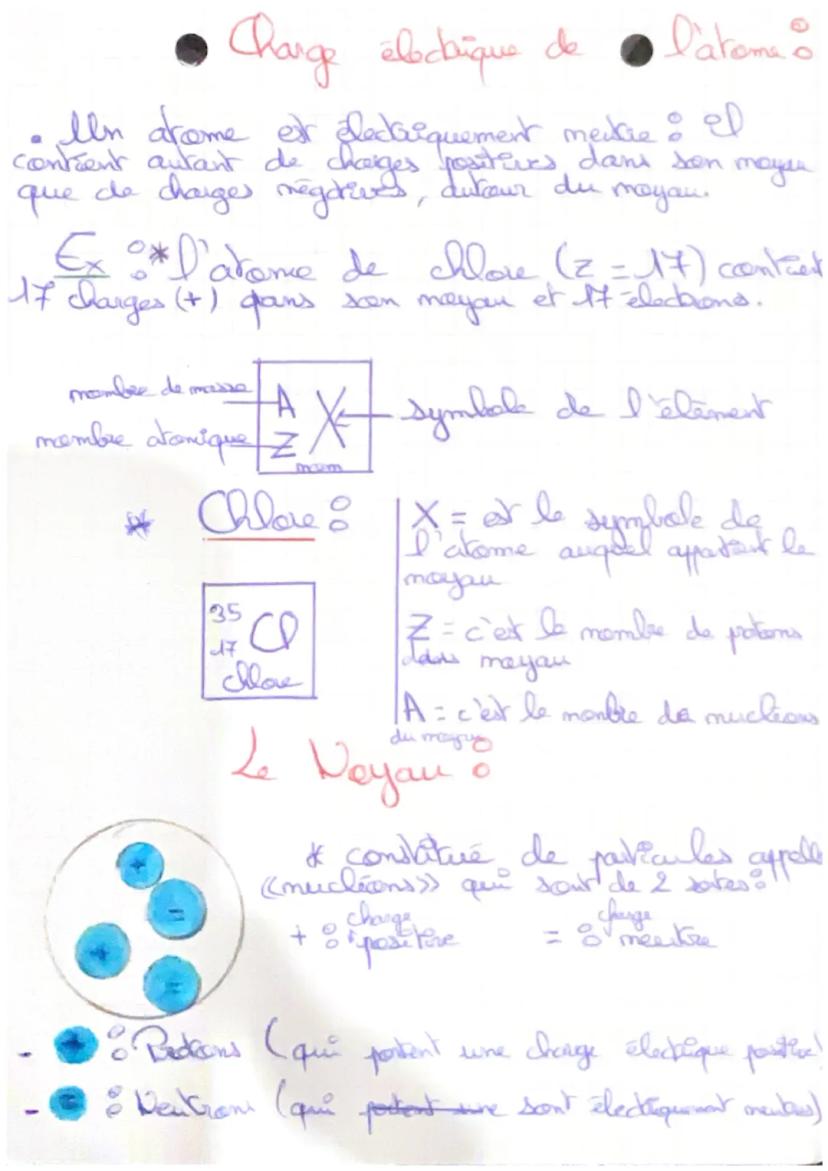 Charge électrique de l'atome :
. Un atome est électriquement neutre : il
contient autant de charges positives dans son noyau
que de charges négatives, autour du noyau.
Ex : * l'atome de chlore (Z = 17) contient
17 charges (+) dans son noyau et 17 électrons.
nombre de masse
A X
symbole de l'élément
nombre atomique
Z
nom
* Chlore :
35
17 Cl
chlore
X = est le symbole de
l'atome auquel appartient le
noyau
Z = c'est le nombre de protons
dans noyau
A = c'est le nombre de nucléons
du noyau
Le Noyau :
* constitué de particules appelle
«nucléons» qui sont de 2 sortes :
+ : charge positive = : charge neutre
- + : Protons (qui portent une charge électrique positive)
- = : Neutrons (qui portent une sont électriquement neutres)